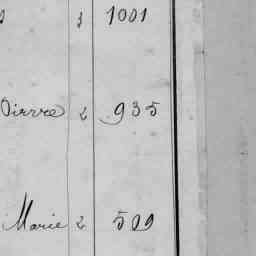 3 1001
Pierre 2 935
Marie 2 509